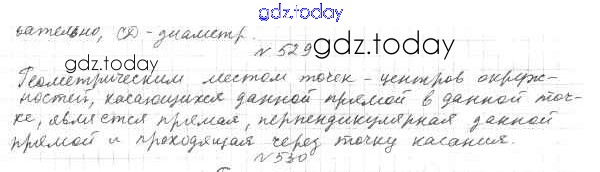 gdz.today
вательно, CD - диаметр.
№ 529
gdz.today
Геометрическим местом точек - центров окруж-
ностей, касающихся данной прямой в данной точ-
ке, является прямая, перпендикулярная данной
прямой и проходящая через точку касания.
№ 530
gdz.today